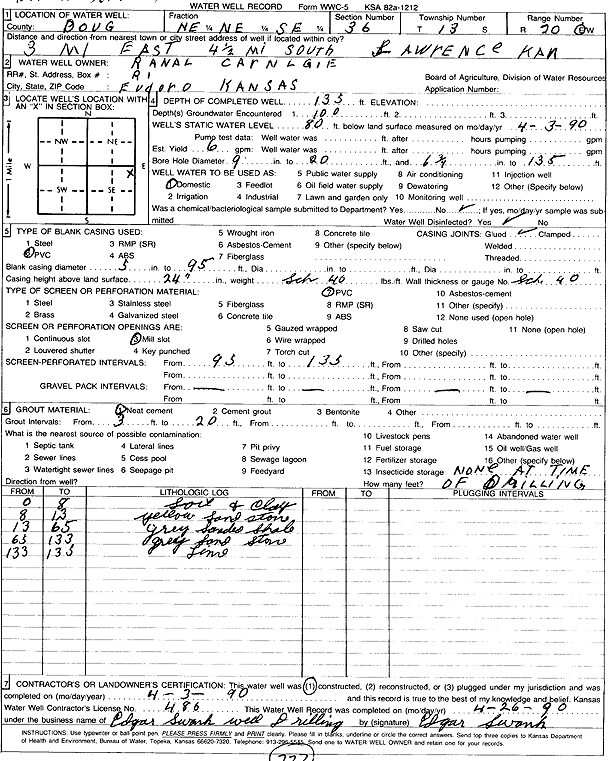 WATER WELL RECORD Form WWC-5 KSA 82a-1212
1 LOCATION OF WATER WELL: Fraction Section Number Township Number Range Number
County: DOUG NE ¼ NE ¼ SE ¼ 36 T 13 S R 20 E/W
Distance and direction from nearest town or city street address of well if located within city?
3 MI EAST 4½ MI SOUTH LAWRENCE KAN
2 WATER WELL OWNER: RANAL CARNEGIE
RR#, St. Address, Box # : R1 Board of Agriculture, Division of Water Resources
City, State, ZIP Code : Eudora KANSAS Application Number:
3 LOCATE WELL'S LOCATION WITH AN "X" IN SECTION BOX:
N
NW NE
W E
X
SW SE
S
1 Mile
4 DEPTH OF COMPLETED WELL 135 ft. ELEVATION:
Depth(s) Groundwater Encountered 1. 100 ft. 2. ft. 3. ft.
WELL'S STATIC WATER LEVEL 80 ft. below land surface measured on mo/day/yr 4-3-90
Pump test data: Well water was ft. after hours pumping gpm
Est. Yield 6 gpm: Well water was ft. after hours pumping gpm
Bore Hole Diameter 9 in. to 20 ft., and 6¼ in. to 135 ft.
WELL WATER TO BE USED AS: 5 Public water supply 8 Air conditioning 11 Injection well
1 Domestic 3 Feedlot 6 Oil field water supply 9 Dewatering 12 Other (Specify below)
2 Irrigation 4 Industrial 7 Lawn and garden only 10 Monitoring well
Was a chemical/bacteriological sample submitted to Department? Yes No ✓; If yes, mo/day/yr sample was sub-
mitted Water Well Disinfected? Yes ✓ No
5 TYPE OF BLANK CASING USED: 5 Wrought iron 8 Concrete tile CASING JOINTS: Glued ✓ Clamped
1 Steel 3 RMP (SR) 6 Asbestos-Cement 9 Other (specify below) Welded
2 PVC 4 ABS 7 Fiberglass Threaded
Blank casing diameter 5 in. to 95 ft., Dia in. to ft., Dia in. to ft.
Casing height above land surface 24" in., weight Sch. 40 lbs./ft. Wall thickness or gauge No. Sch. 40
TYPE OF SCREEN OR PERFORATION MATERIAL: 7 PVC 10 Asbestos-cement
1 Steel 3 Stainless steel 5 Fiberglass 8 RMP (SR) 11 Other (specify)
2 Brass 4 Galvanized steel 6 Concrete tile 9 ABS 12 None used (open hole)
SCREEN OR PERFORATION OPENINGS ARE: 5 Gauzed wrapped 8 Saw cut 11 None (open hole)
1 Continuous slot 3 Mill slot 6 Wire wrapped 9 Drilled holes
2 Louvered shutter 4 Key punched 7 Torch cut 10 Other (specify)
SCREEN-PERFORATED INTERVALS: From 95 ft. to 135 ft., From ft. to ft.
From ft. to ft., From ft. to ft.
GRAVEL PACK INTERVALS: From ft. to ft., From ft. to ft.
From ft. to ft., From ft. to ft.
6 GROUT MATERIAL: 1 Neat cement 2 Cement grout 3 Bentonite 4 Other
Grout Intervals: From 3 ft. to 20 ft., From ft. to ft., From ft. to ft.
What is the nearest source of possible contamination: 10 Livestock pens 14 Abandoned water well
1 Septic tank 4 Lateral lines 7 Pit privy 11 Fuel storage 15 Oil well/Gas well
2 Sewer lines 5 Cess pool 8 Sewage lagoon 12 Fertilizer storage 16 Other (specify below)
3 Watertight sewer lines 6 Seepage pit 9 Feedyard 13 Insecticide storage NONE AT TIME
Direction from well? How many feet? OF DRILLING
FROM TO LITHOLOGIC LOG FROM TO PLUGGING INTERVALS
0 8 Soil & Clay
8 13 yellow sand stone
13 65 grey sandee shale
65 133 grey sand stone
133 135 Lime
7 CONTRACTOR'S OR LANDOWNER'S CERTIFICATION: This water well was (1) constructed, (2) reconstructed, or (3) plugged under my jurisdiction and was
completed on (mo/day/year) 4-3-90 and this record is true to the best of my knowledge and belief. Kansas
Water Well Contractor's License No. 486 This Water Well Record was completed on (mo/day/yr) 4-26-90
under the business name of Edgar Swank well Drilling by (signature) Edgar Swank
INSTRUCTIONS: Use typewriter or ball point pen. PLEASE PRESS FIRMLY and PRINT clearly. Please fill in blanks, underline or circle the correct answers. Send top three copies to Kansas Department
of Health and Environment, Bureau of Water, Topeka, Kansas 66620-7320. Telephone: 913-296-5545. Send one to WATER WELL OWNER and retain one for your records.